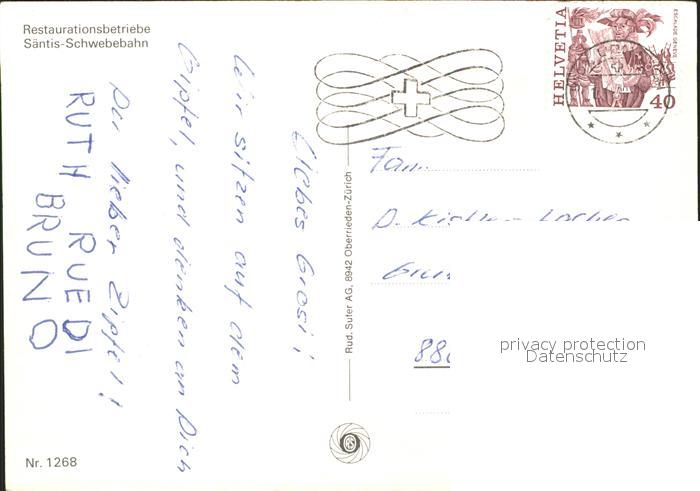 Restaurationsbetriebe
Säntis-Schwebebahn
Liebes Grosi!
Wir sitzen auf dem
Gipfel, und denken an Dich
Du lieber Zipfel!
RUTH RUEDI
BRUNO
Nr. 1268
Rud. Suter AG, 8942 Oberrieden-Zürich
HELVETIA
ESCALADE GENÈVE
40
Fam.
D.
88
privacy protection
Datenschutz